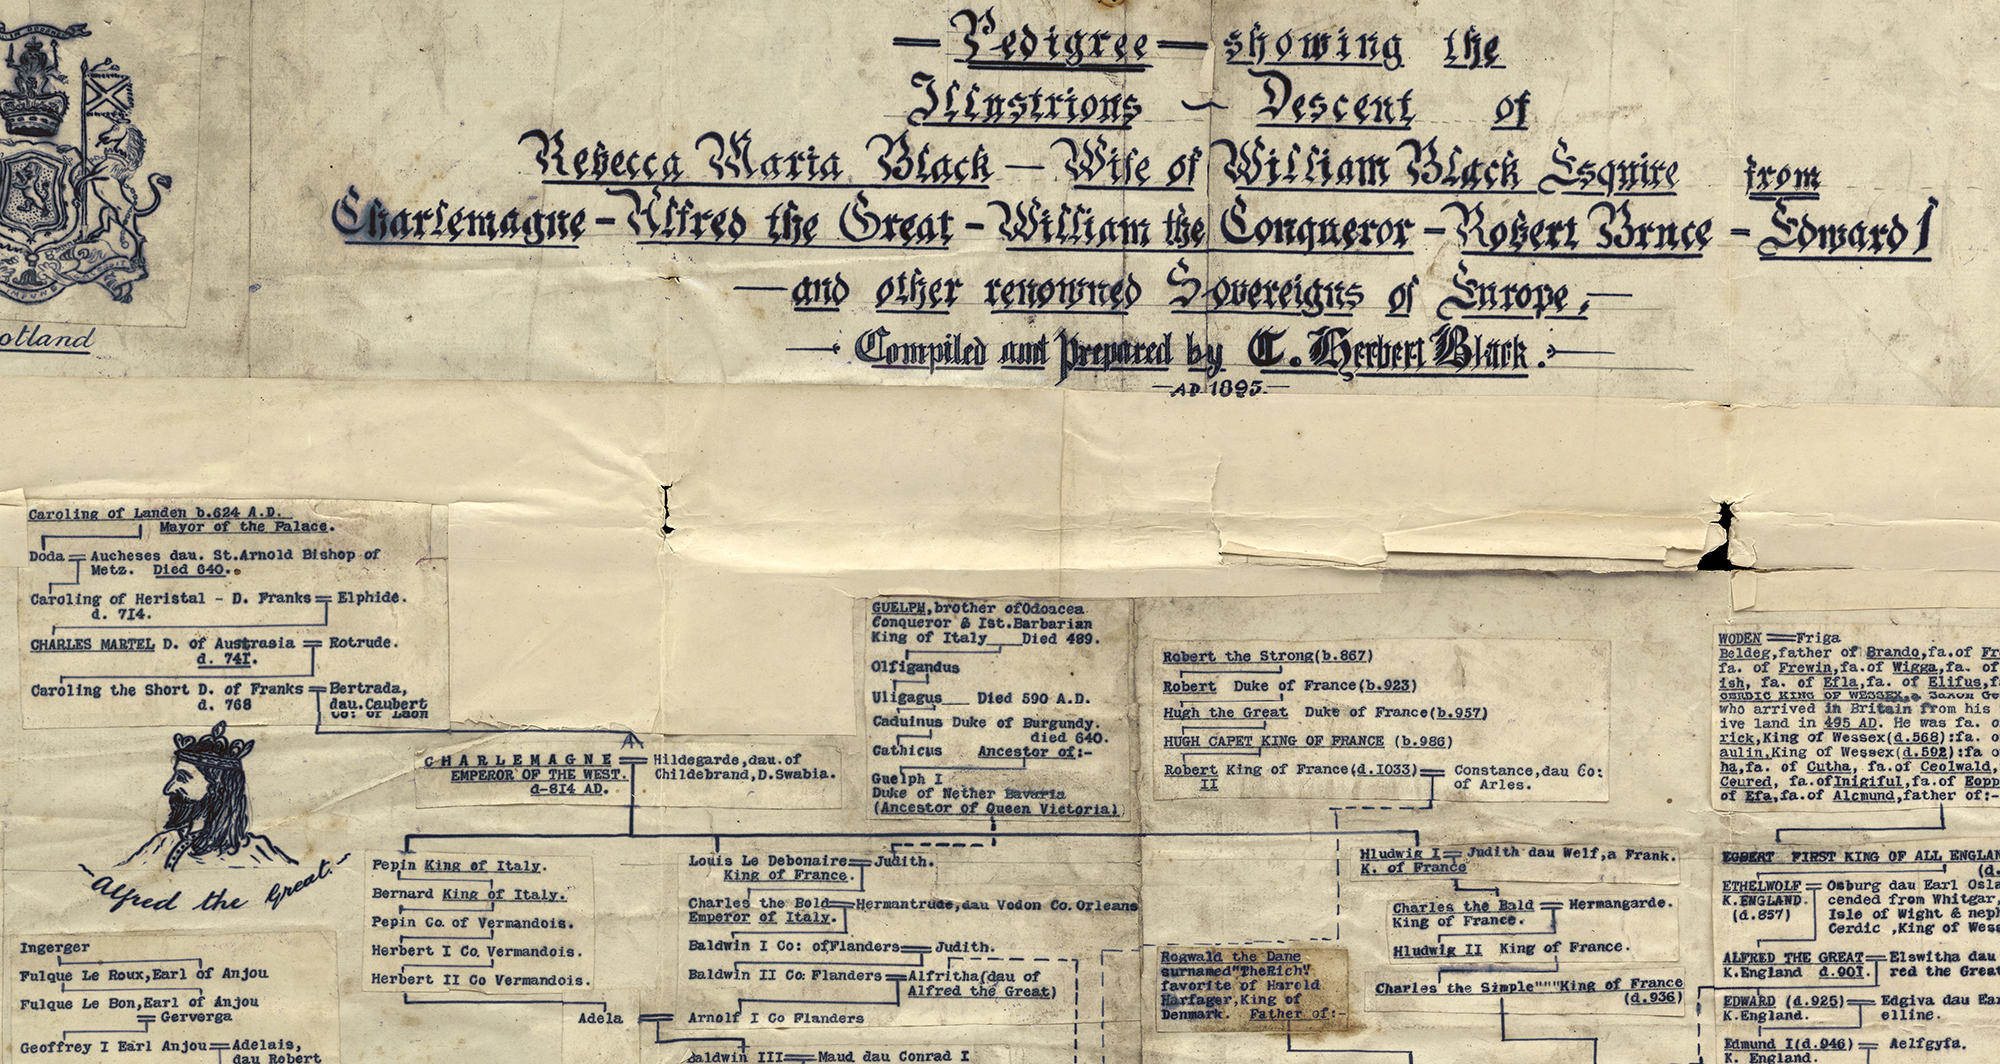 Pedigree — showing the
Illustrious ~ Descent of
Rebecca Maria Black — Wife of William Black Esquire from
Charlemagne - Alfred the Great - William the Conqueror - Robert Bruce - Edward I
— and other renowned Sovereigns of Europe, —
Compiled and Prepared by C. Herbert Black.
AD 1895.
otland
Caroling of Landen b.624 A.D.
Mayor of the Palace.
Doda = Aucheses dau. St.Arnold Bishop of
Metz. Died 640.
Caroling of Heristal - D. Franks = Elphide.
d. 714.
CHARLES MARTEL D. of Austrasia = Rotrude.
d. 741.
Caroling the Short D. of Franks = Bertrada,
d. 768 dau.Caubert
Co: of Laon
CHARLEMAGNE = Hildegarde,dau.of
EMPEROR OF THE WEST. Childebrand,D.Swabia.
d-814 AD.
GUELPH,brother ofOdoacea
Conqueror & Ist.Barbarian
King of Italy___Died 489.
Olfigandus
Uligagus___ Died 590 A.D.
Caduinus Duke of Burgundy.
died 640.
Cathicus Ancestor of:-
Guelph I
Duke of Nether Bavaria
(Ancestor of Queen Victoria)
Robert the Strong(b.867)
Robert Duke of France(b.923)
Hugh the Great Duke of France(b.957)
HUGH CAPET KING OF FRANCE (b.986)
Robert King of France(d.1033) = Constance,dau Co:
II of Arles.
WODEN = Friga
Beldeg,father of Brando,fa.of Fr
fa. of Frewin,fa.of Wigga,fa. of
ish, fa. of Efla,fa. of Elifus,f
CERDIC KING OF WESSEX,a Saxon Ge
who arrived in Britain from his
ive land in 495 AD. He was fa. o
rick,King of Wessex(d.568):fa. o
aulin,King of Wessex(d.592):fa o
ha,fa. of Cutha, fa.of Ceolwald,
Ceured, fa.ofInigiful,fa.of Eopp
of Efa,fa.of Alcmund,father of:-
Alfred the Great.
Pepin King of Italy.
Bernard King of Italy.
Pepin Co. of Vermandois.
Herbert I Co. Vermandois.
Herbert II Co Vermandois.
Louis Le Debonaire = Judith.
King of France.
Charles the Bold = Hermantrude,dau Vodon Co.Orleans
Emperor of Italy.
Baldwin I Co: ofFlanders = Judith.
Baldwin II Co: Flanders = Alfritha(dau of
Alfred the Great)
Adela = Arnolf I Co Flanders
Baldwin III = Maud dau Conrad I
Hludwig I = Judith dau Welf,a Frank.
K. of France
Charles the Bald = Hermangarde.
King of France.
Hludwig II King of France.
Charles the Simple"""King of France
(d.936)
Rogwald the Dane
surnamed"TheRich"
favorite of Harold
Harfager,King of
Denmark. Father of:-
EGBERT FIRST KING OF ALL ENGLAN
(d.
ETHELWOLF = Osburg dau Earl Osla
K.ENGLAND. cended from Whitgar,
(d.857) Isle of Wight & neph
Cerdic ,King of Wes
ALFRED THE GREAT = Elswitha dau
K.England d.901. red the Great
EDWARD (d.925) = Edgiva dau Ea
K.England. elline.
Edmund I(d.946) = Aelfgyfa.
K. England.
Ingerger
Fulque Le Roux,Earl of Anjou
Fulque Le Bon,Earl of Anjou
= Gerverga
Geoffrey I Earl Anjou = Adelais,
dau Robert